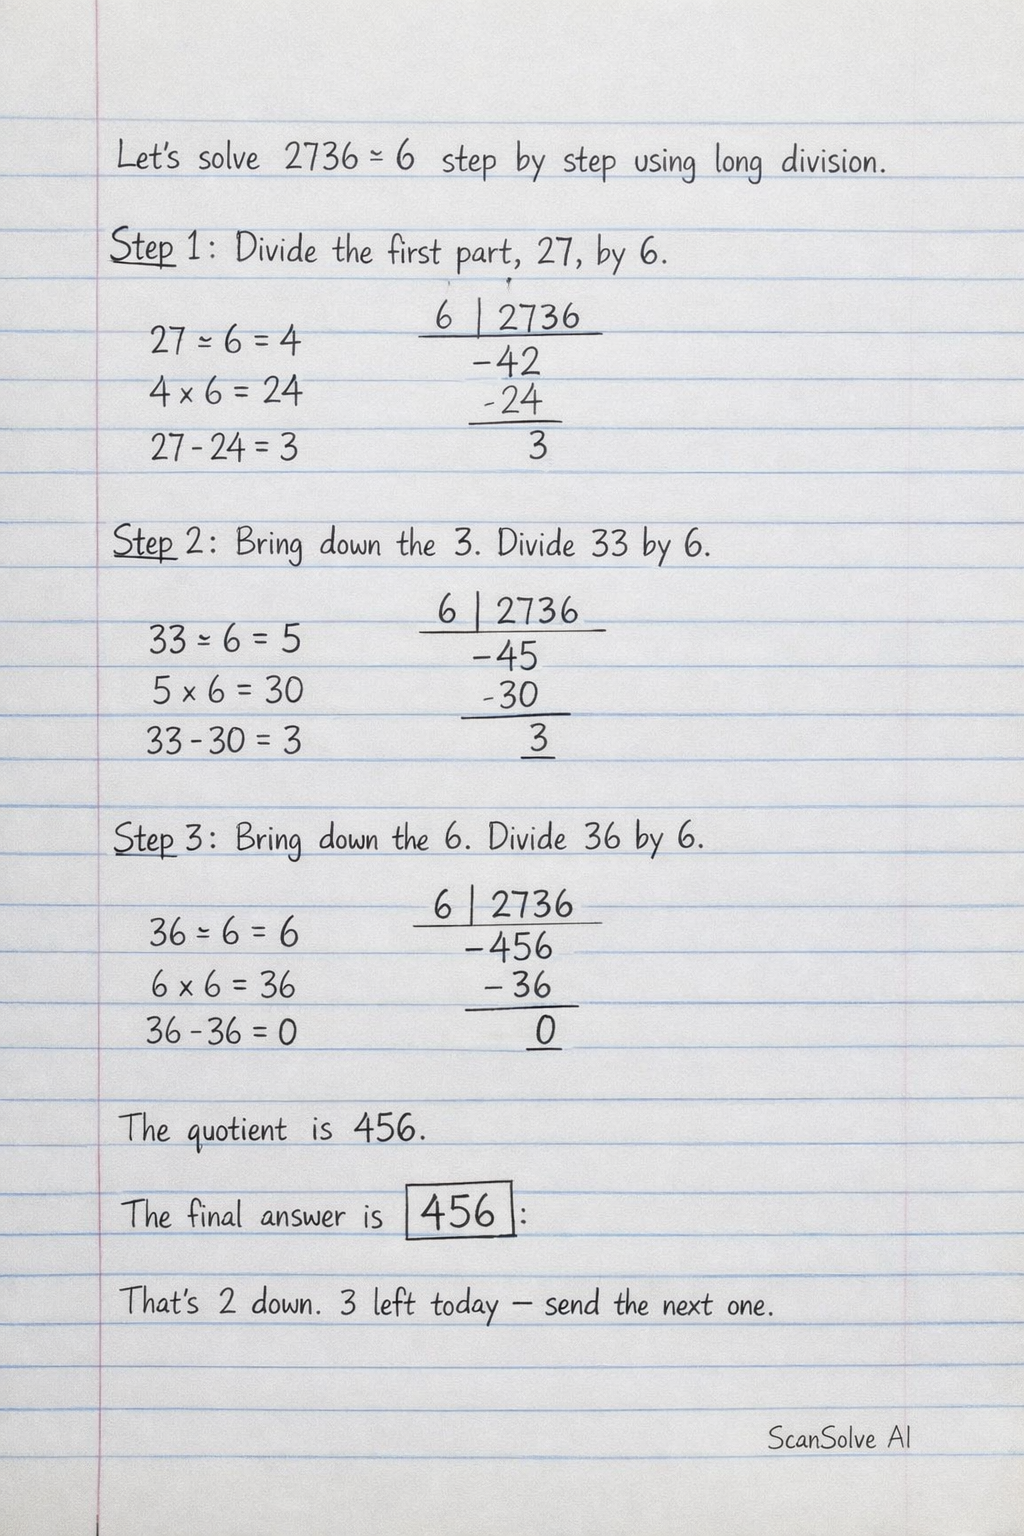 Let's solve 2736 ≃ 6 step by step using long division.
Step 1: Divide the first part, 27, by 6.
27 ≃ 6 = 4
4 × 6 = 24
27 - 24 = 3
6 | 2736
-42
-24
3
Step 2: Bring down the 3. Divide 33 by 6.
33 ≃ 6 = 5
5 × 6 = 30
33 - 30 = 3
6 | 2736
-45
-30
3
Step 3: Bring down the 6. Divide 36 by 6.
36 ≃ 6 = 6
6 × 6 = 36
36 - 36 = 0
6 | 2736
-456
- 36
0
The quotient is 456.
The final answer is 456:
That's 2 down. 3 left today — send the next one.
ScanSolve AI